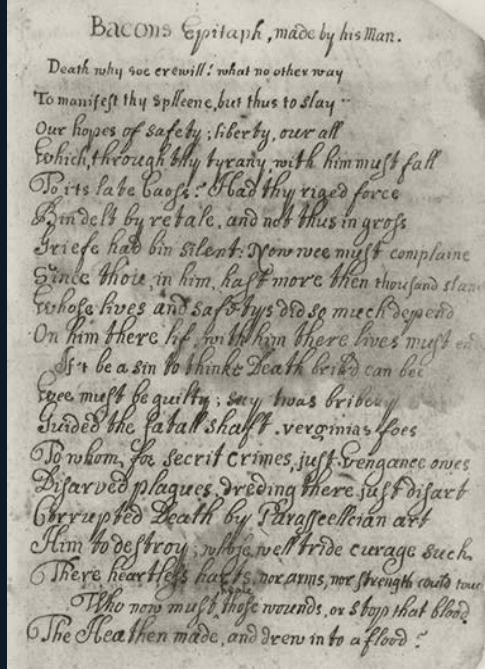 Bacons Epitaph, made by his Man.
Death why soe crewill! what no other way
To manifest thy splleene, but thus to slay
Our hopes of safety; liberty, our all
Which, through thy tyrany, with him must fall
To its late Caoss? Had thy riged force
Bin delt by retale, and not thus in gross
Griefe had bin silent: Now wee must complaine
Since thou, in him, hast more then thousand slane
Whose lives and safetys did so much depend
On him there lif, with him there lives must end
If't be a sin to thinke Death brib'd can bee
Wee must be guilty; say twas bribery
Guided the fatall shaft. verginias foes
To whom for secrit crimes, just vengance owes
Disarved plagues, dreding there just disart
Corrupted Death by Parasscellcian art
Him to destroy; whose well tride curage such
There heartless harts, nor arms, nor strength could touch
Who now must heale those wounds, or stop that blood
The Heathen made, and drew in to a flood?